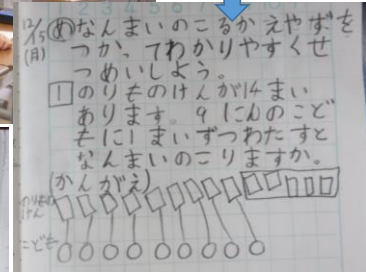 12/15
(月)
めなんまいのこるかえやずを
つかってわかりやすくせ
つめいしよう。
1 のりものけんが14まい
あります。9にんのこど
もに1まいずつわたすと
なんまいのこりますか。
(かんがえ)
のりもの
けん
こども